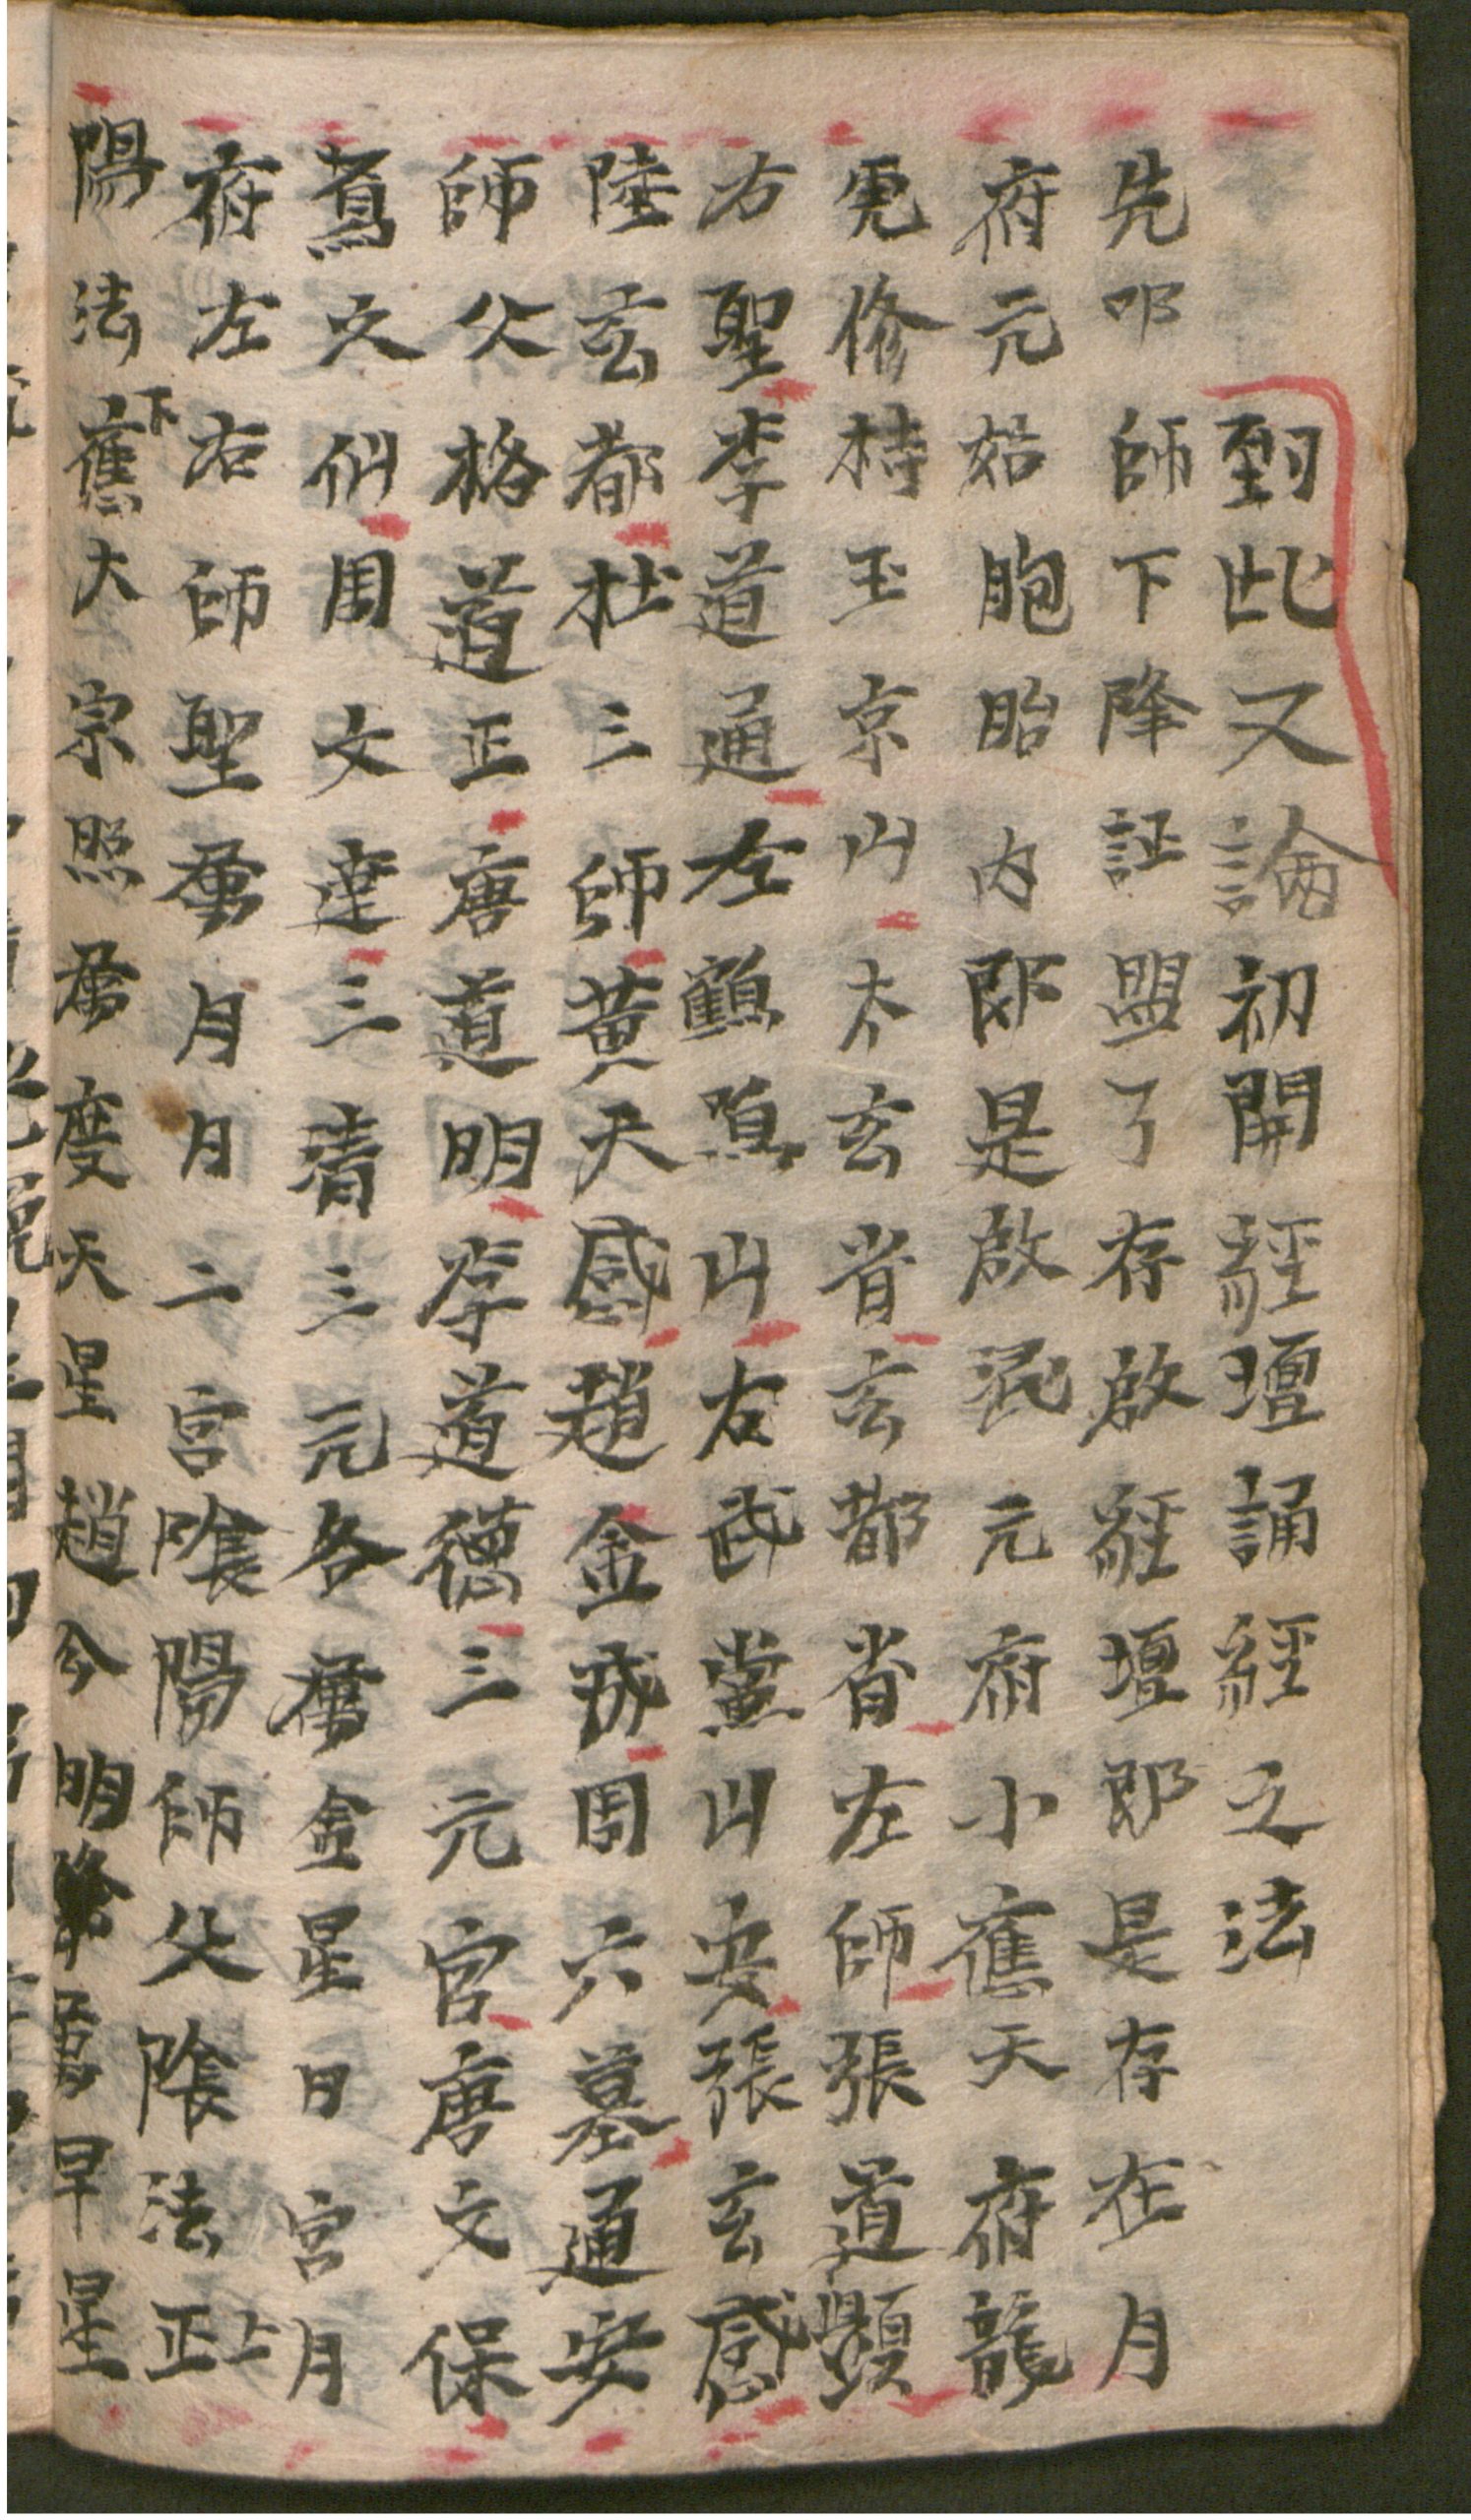 到此又論初開經壇誦經之法
先叩師下降証盟了存啟經壇即是存在月
府元始胞胎内即是啟混元府小應天府龍
虎修持玉京山太玄省玄都省左師張道顯
右聖李道通左鶴鳴山右武當山安張玄感
陸玄都杜三師黄天感趙金成周六墓通安
師父格道正唐道明李道德三元官唐文保
馮文仙周文達三清三元各爲金星日宮月
府左右師聖爲月月二宮陰陽師父陰法正上
陽法應下大宗照爲度天星趙今明爲早星